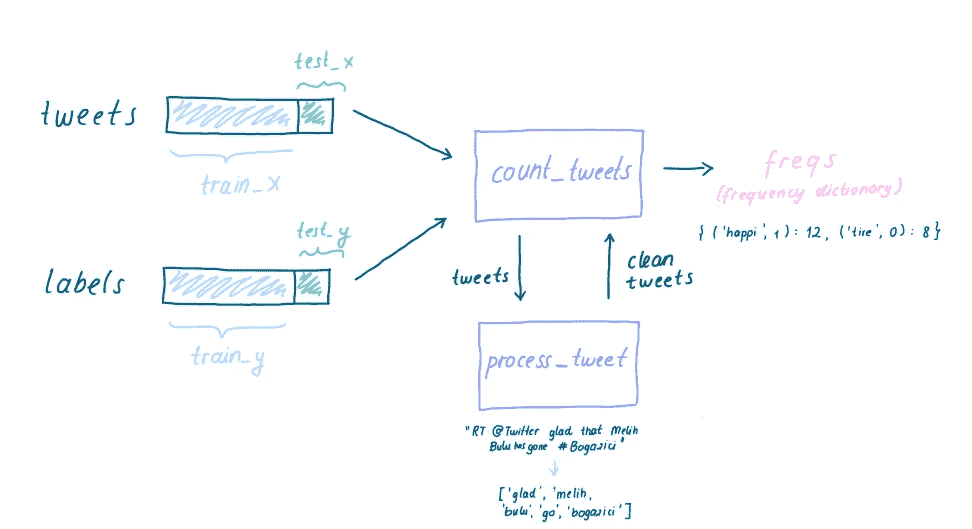 test_x
tweets
train_x
count_tweets
freqs
(frequency dictionary)
{ ('happi', 1) : 12, ('tire', 0) : 8 }
test_y
labels
train_y
tweets
clean
tweets
process_tweet
"RT @Twitter glad that Melih
Bulu has gone #Bogazici"
['glad', 'melih,
'bulu', 'go', 'bogazici']